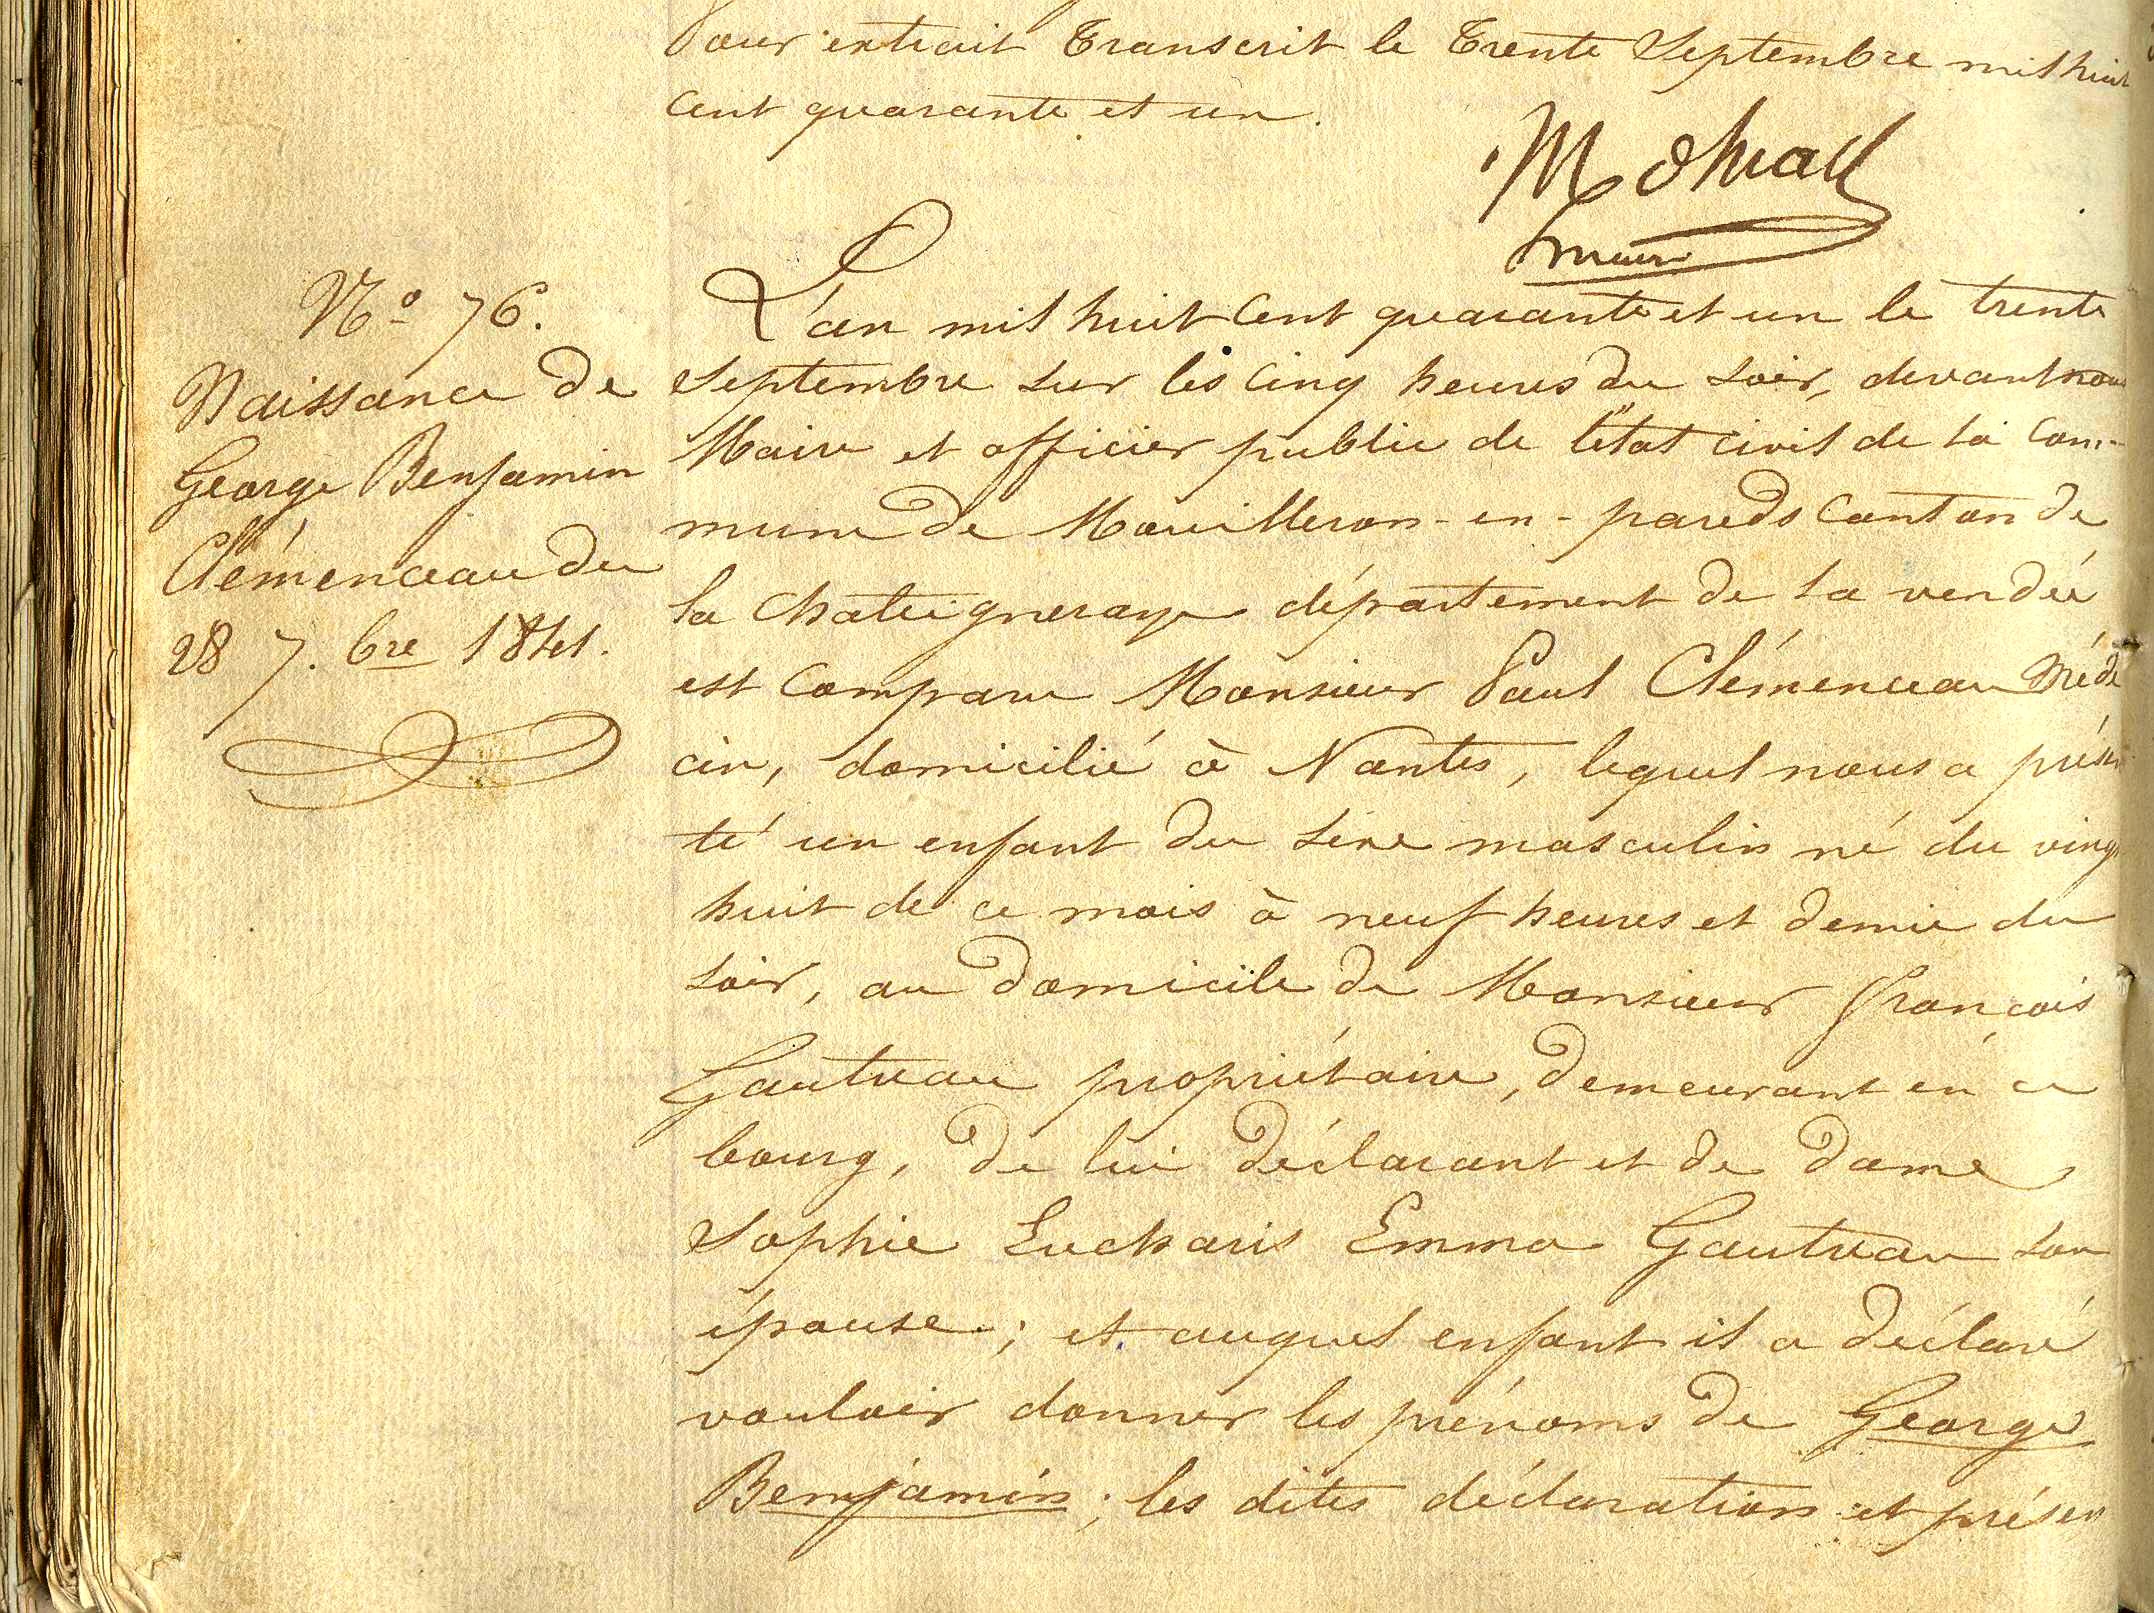 Pour extrait Transcrit le Trente Septembre mil huit
cent quarante et un.
maire
N° 76.
Naissance de
George Benjamin
Clémenceau du
28 7.bre 1841.
L'an mil huit Cent quarante et un le trente
Septembre sur les Cinq heures du soir, devant nous
Maire et officier public de l'état civil de la Com-
mune de Mouilleron-en-pareds Canton de
la Chateigneraye département de la vendée
est Comparu Monsieur Paul Clémenceau Méde
cin, domicilié à Nantes, lequel nous a présen
té un enfant du sexe masculin né du vingt
huit de ce mois à neuf heures et demie du
soir, au domicile de Monsieur françois
Gautreau propriétaire, demeurant en ce
bourg, de lui déclarant et de dame
Sophie Eucharis Emma Gautreau son
épouse; et auquel enfant il a déclaré
vouloir donner les prénoms de George
Benjamin; les dites déclaration et présen